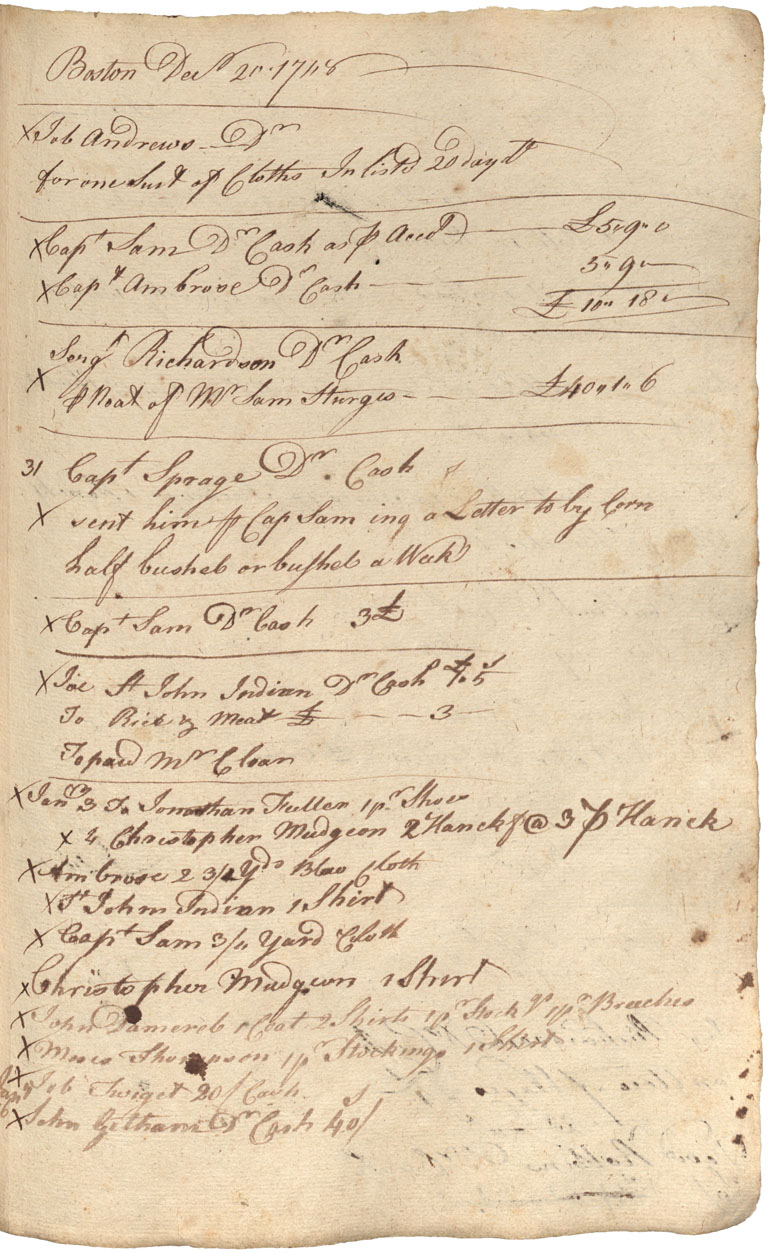 Boston Decr 20. 1748
x Job Andrews Dr
for one Sute of Cloths Inlistd 20 day
x Capt Sam Dr Cash as ₱ Acct £5" 9" 0
x Capt Ambrose Dr Cash 5" 9"
£ 10" 18"
Sergt Richardson Dr Cash
x ₱ Noat of Mr Sam Sturges £40" 1" 6
31 Capt Sprage Dr Cash
x sent him ₱ Cap Sam ing a Letter to by Corn
half bushel or bushel a Week
x Capt Sam Dr Cash 3£
x Joe St John Indian Dr Cash 5
To Rice & Meat £ 3
To paid Mr Cloan
x Janry 3 To Jonathan Fuller 1 pr Shoes
x 4 Christopher Mudgeon 2 Hanckf @ 3 ₱ Hanck
x Ambrose 2 3/4 Yds Blew Cloth
x St John Indian 1 Shirt
x Capt Sam 3/4 Yard Cloth
x Christopher Mudgeon 1 Shirt
x John Damereb 1 Coat 2 Shirts 1 pr Stockgs 1 pr Breeches
x Moses Thompson 1 pr Stockings 1 Shirt
x Job Twiget 20/ Cash
x John Gethans Dr Cash 40/